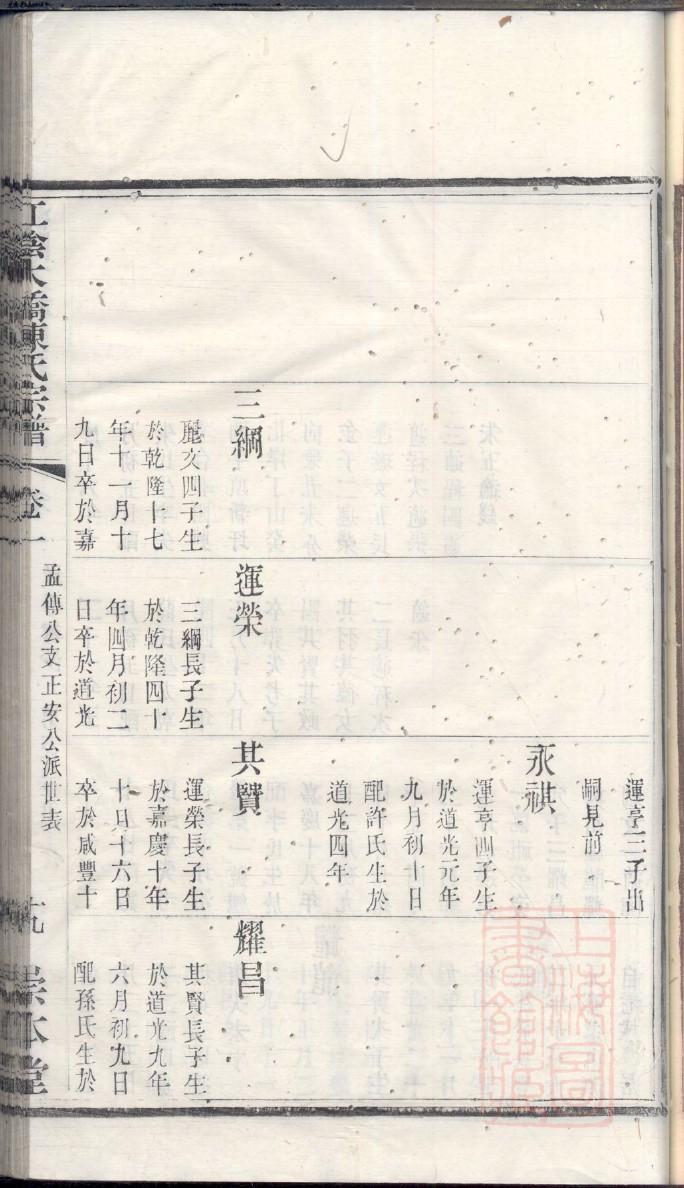 三綱
麗文四子生
於乾隆十七
年十一月十
九日卒於嘉
運榮
三綱長子生
於乾隆四十
年四月初二
日卒於道光
運亨三子出
嗣見前
永祺
運亨四子生
於道光元年
九月初十日
配許氏生於
道光四年
其賢
運榮長子生
於嘉慶十年
十月十六日
卒於咸豐十
耀昌
其賢長子生
於道光九年
六月初九日
配孫氏生於
江陰大橋陳氏宗譜
卷一
孟傳公支正安公派世表
九
崇本堂
上海圖書館藏